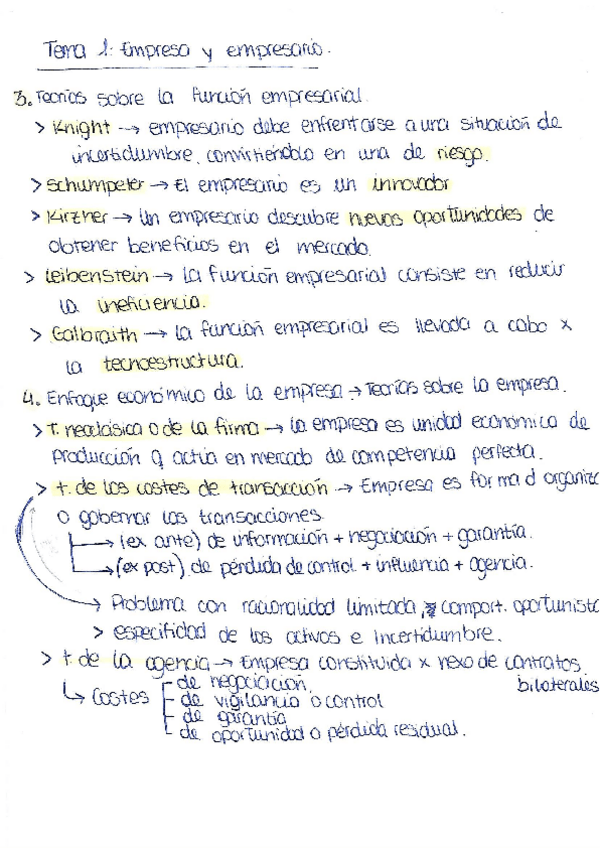 Tema 1: Empresa y empresario.
3. Teorías sobre la función empresarial.
> Knight → empresario debe enfrentarse a una situación de
incertidumbre, convirtiéndolo en una de riesgo.
> Schumpeter → El empresario es un innovador
> Kirzner → Un empresario descubre nuevas oportunidades de
obtener beneficios en el mercado.
> Leibenstein → La función empresarial consiste en reducir
la ineficiencia.
> Galbraith → la función empresarial es llevada a cabo x
la tecnoestructura.
4. Enfoque económico de la empresa → Teorías sobre la empresa.
> T. neoclásica o de la firma → la empresa es unidad económica de
producción q actúa en mercado de competencia perfecta.
> t. de los costes de transacción → Empresa es forma d organiza
o gobernar las transacciones.
→ (ex ante) de información + negociación + garantía.
→ (ex post) de pérdida de control + influencia + agencia.
→ Problema con racionalidad limitada, y comport. oportunista
> especifidad de los activos e Incertidumbre.
> t. de la agencia → Empresa constituida x nexo de contratos
bilaterales
↳ Costes
de negociación.
de vigilancia o control
de garantía
de oportunidad o pérdida residual.